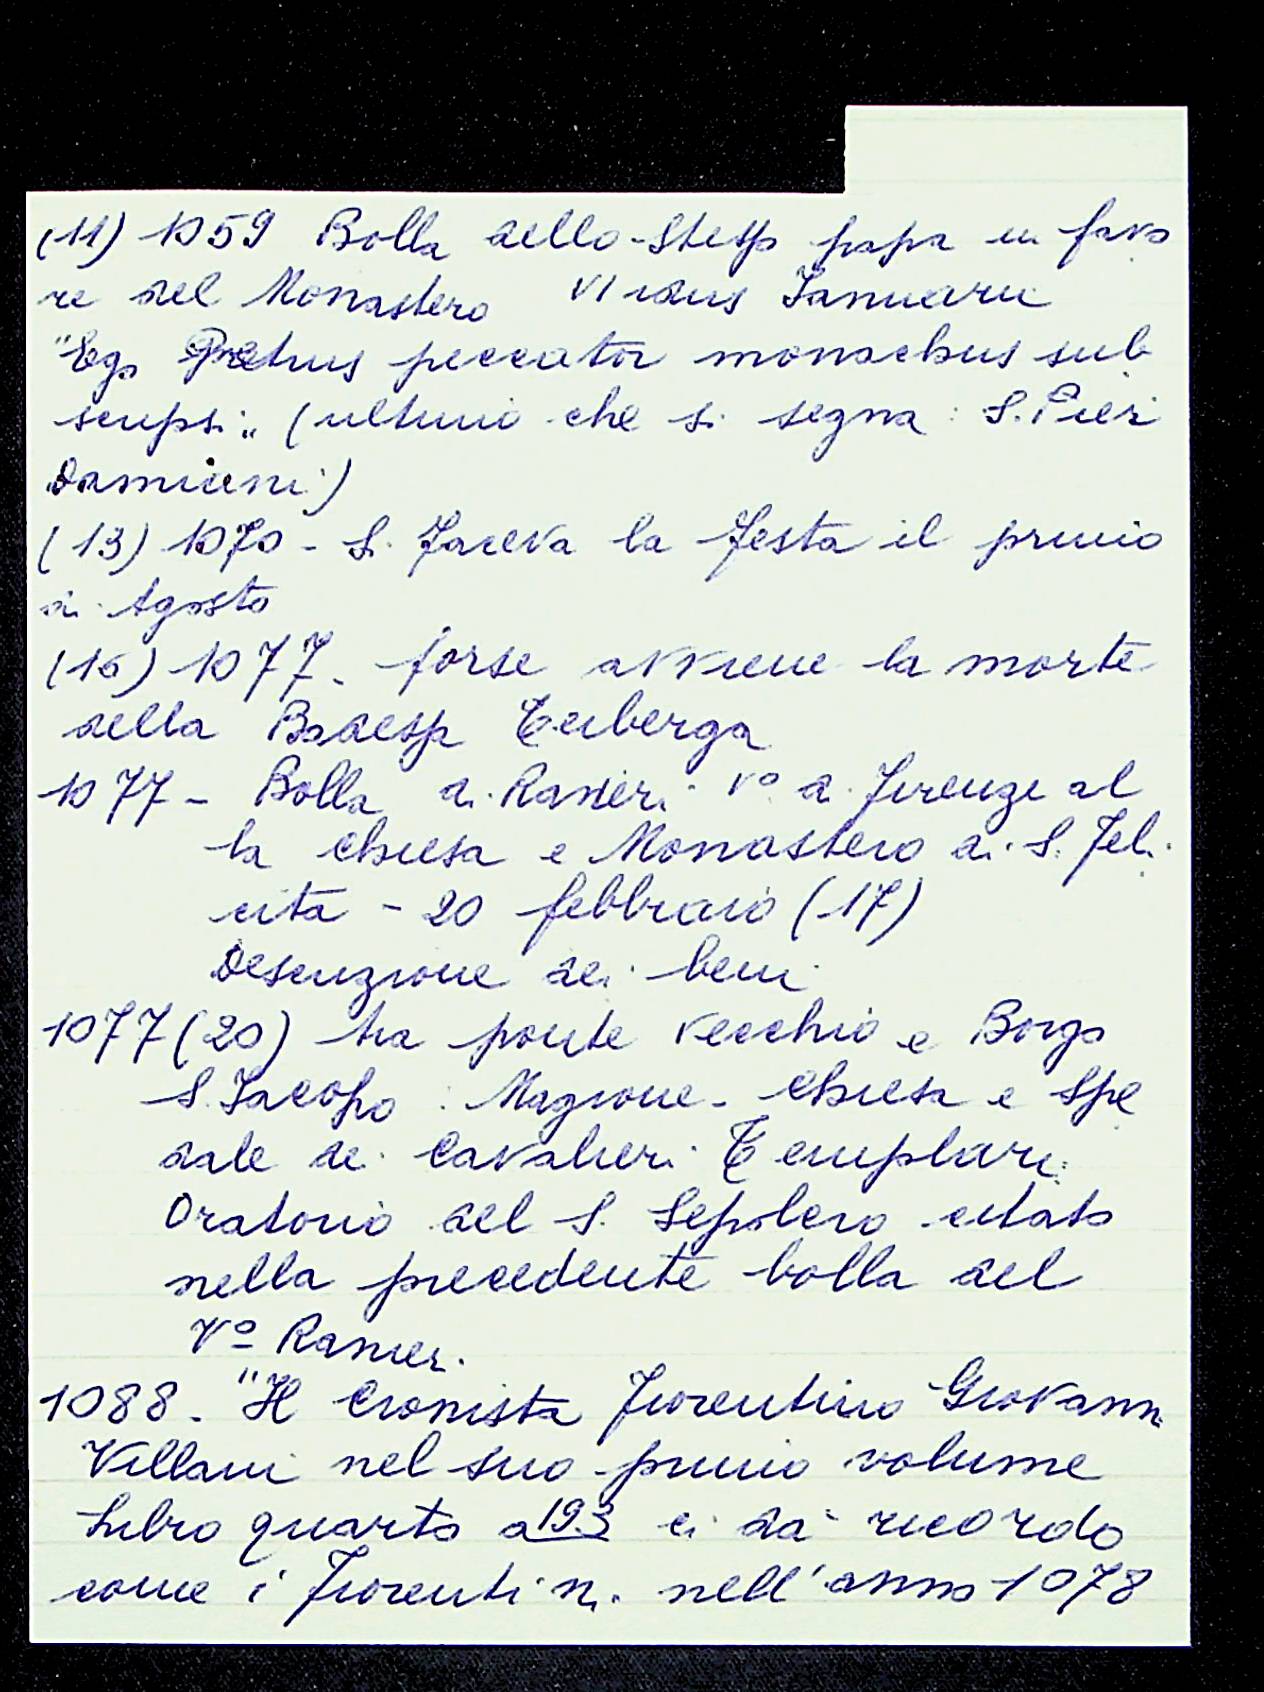 (11) 1059 Bolla dello stesso papa in favo
re del Monastero VI idus Januarii
"Ego Petrus peccator monachus sub
scripsi„ (ultimo che si segna: S. Pier
Damiani)
(13) 1070 - Si faceva la festa il primo
di Agosto
(16) 1077 - forse avviene la morte
della Badessa Teuberga
1077 - Bolla di Ranieri Vº di Firenze al
la chiesa e Monastero di S. Feli
cita - 20 febbraio (17)
Descrizione dei beni
1077 (20) tra ponte Vecchio e Borgo
S. Jacopo: Magione - chiesa e Spe
dale dei Cavalieri Templari:
Oratorio del S. Sepolcro citato
nella precedente bolla del
Vº Ranieri.
1088 - "Il Cronista fiorentino Giovanni
Villani nel suo primo volume
Libro quarto a 193 ci dà ricordo
come i fiorentini nell'anno 1078